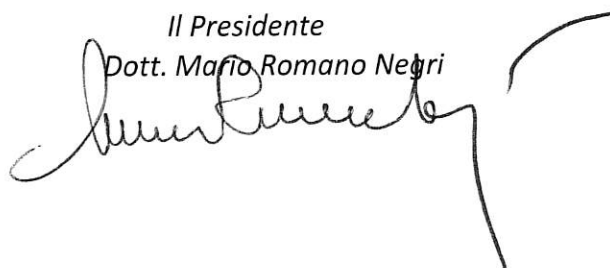 Il Presidente
Dott. Mario Romano Negri